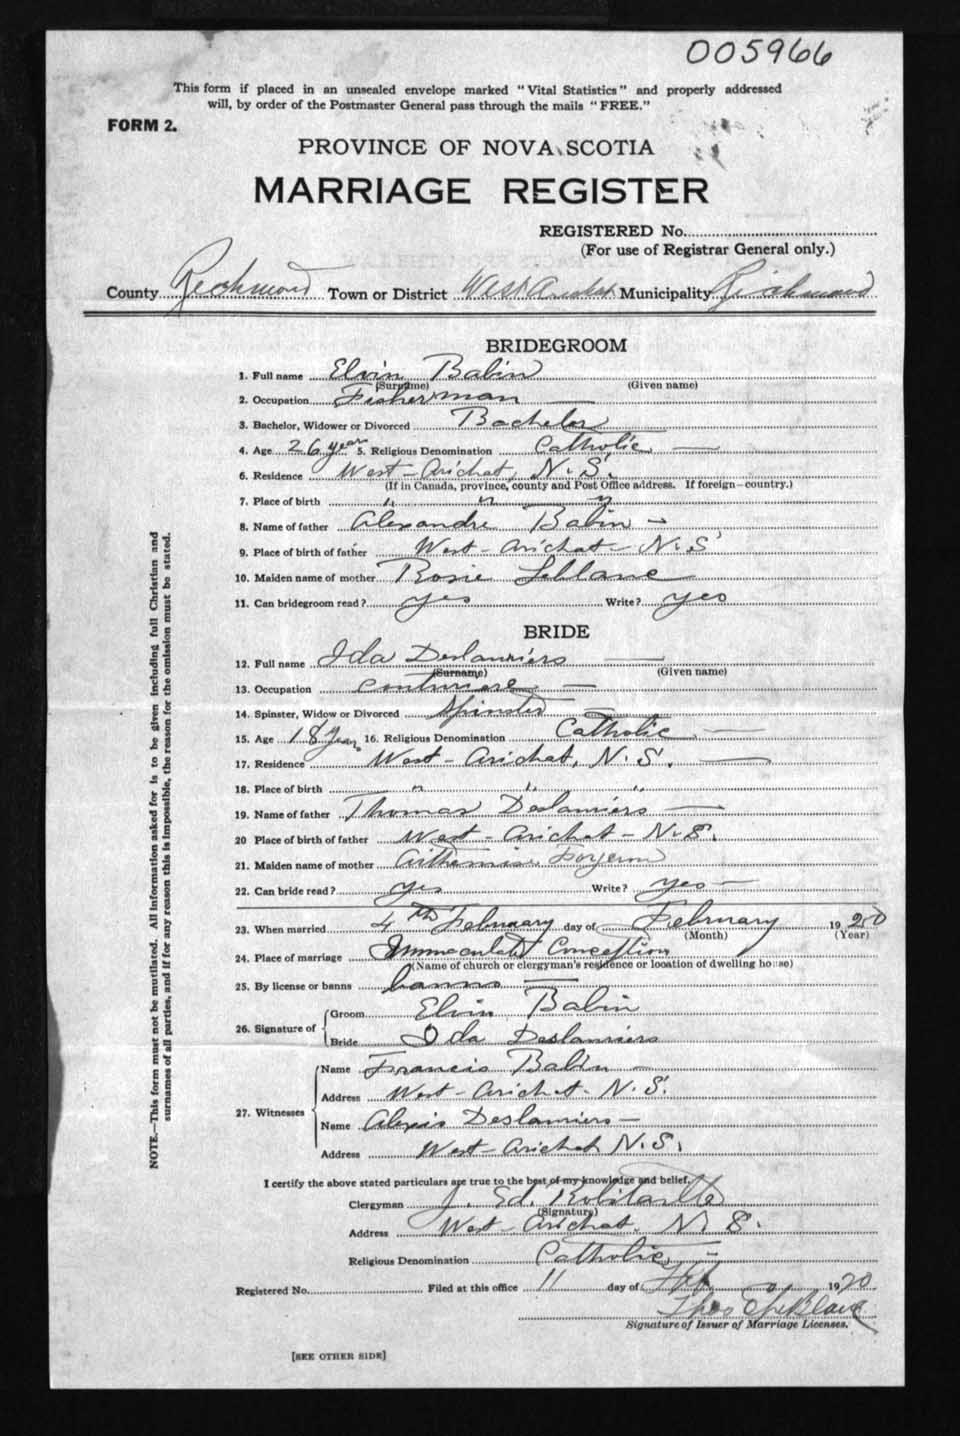 005966
This form if placed in an unsealed envelope marked "Vital Statistics" and properly addressed
will, by order of the Postmaster General pass through the mails "FREE."
FORM 2.
PROVINCE OF NOVA SCOTIA
MARRIAGE REGISTER
REGISTERED No.
(For use of Registrar General only.)
County Richmond Town or District West Arichat Municipality Richmond
BRIDEGROOM
1. Full name Elvin Babin
(Surname) (Given name)
2. Occupation Fisherman
3. Bachelor, Widower or Divorced Bachelor
4. Age 26 years 5. Religious Denomination Catholic
6. Residence West-Arichat, N.S.
(If in Canada, province, county and Post Office address. If foreign-country.)
7. Place of birth " " "
8. Name of father Alexandre Babin
9. Place of birth of father West-Arichat-N.S
10. Maiden name of mother Rosie Leblanc
11. Can bridegroom read? yes Write? yes
BRIDE
12. Full name Ida Deslauriers
(Surname) (Given name)
13. Occupation
14. Spinster, Widow or Divorced Spinster
15. Age 18 years 16. Religious Denomination Catholic
17. Residence West-Arichat, N.S.
18. Place of birth " " "
19. Name of father Thomas Deslauriers
20 Place of birth of father West-Arichat-N.S.
21. Maiden name of mother
22. Can bride read? yes Write? yes
23. When married 4th February day of February 1920
(Month) (Year)
24. Place of marriage Immaculate Conception
(Name of church or clergyman's residence or location of dwelling house)
25. By license or banns banns
26. Signature of Groom Elvin Babin
Bride Ida Deslauriers
27. Witnesses
Name Francis Babin
Address West-Arichat-N.S.
Name Alexis Deslauriers
Address West-Arichat N.S.
I certify the above stated particulars are true to the best of my knowledge and belief.
Clergyman J. Ed. Robitaille
(Signature)
Address West-Arichat, N.S.
Religious Denomination Catholic
Registered No. Filed at this office 11 day of Feb 1920
Signature of Issuer of Marriage Licenses.
[SEE OTHER SIDE]
NOTE.—This form must not be mutilated. All information asked for is to be given including full Christian and
surnames of all parties, and if for any reason this is impossible, the reason for the omission must be stated.